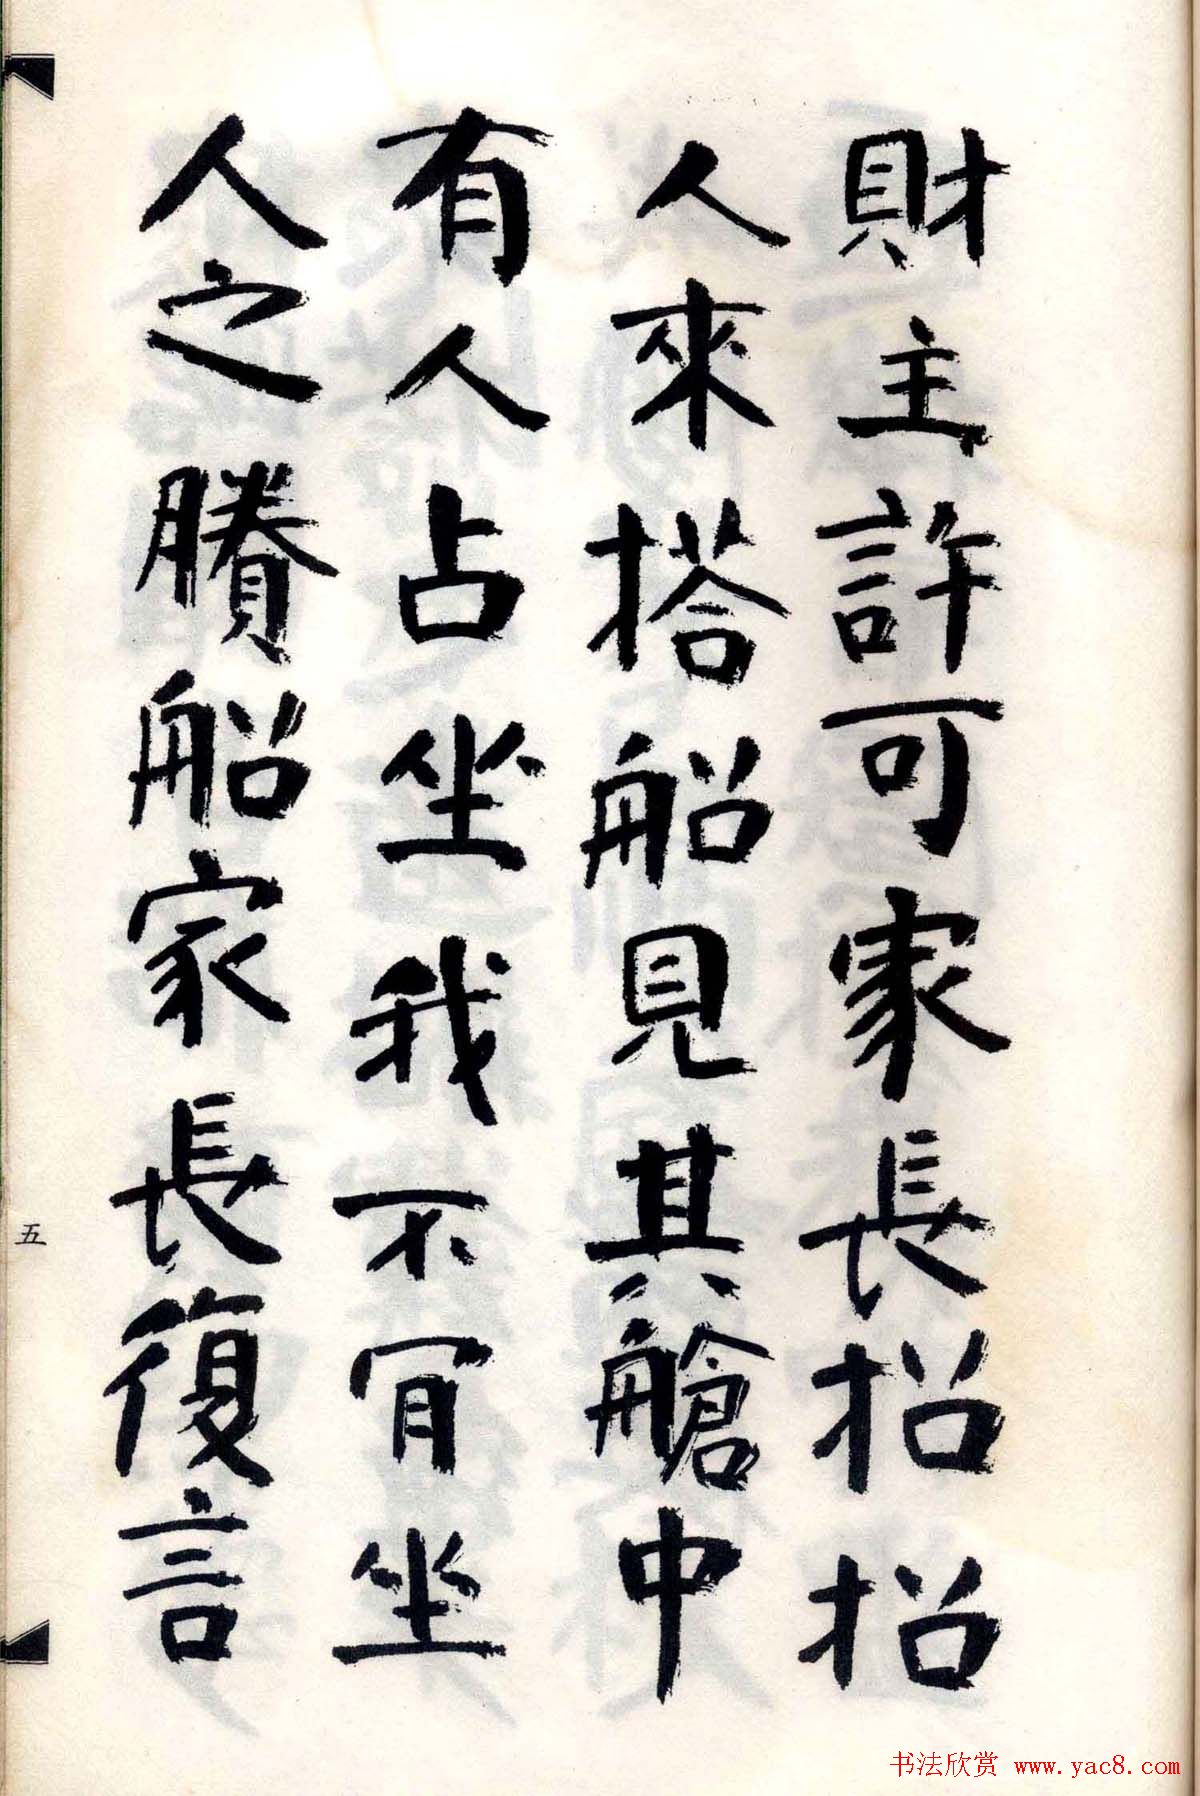 財主許可家長招招
人來搭船見其艙中
有人占坐我不肯坐
人之賸船家長復言
五
书法欣赏 www.yac8.com